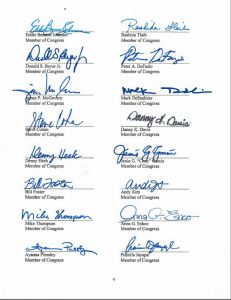 Eddie Bernice Johnson
Member of Congress
Rashida Tlaib
Member of Congress
Donald S. Beyer Jr.
Member of Congress
Peter A. DeFazio
Member of Congress
James P. McGovern
Member of Congress
Mark DeSaulnier
Member of Congress
Steve Cohen
Steve Cohen
Member of Congress
Danny K. Davis
Danny K. Davis
Member of Congress
Denny Heck
Denny Heck
Member of Congress
Jesús G. "Chuy" García
Member of Congress
Bill Foster
Bill Foster
Member of Congress
Andy Kim
Member of Congress
Mike Thompson
Mike Thompson
Member of Congress
Anna G. Eshoo
Anna G. Eshoo
Member of Congress
Ayanna Pressley
Member of Congress
Pramila Jayapal
Member of Congress